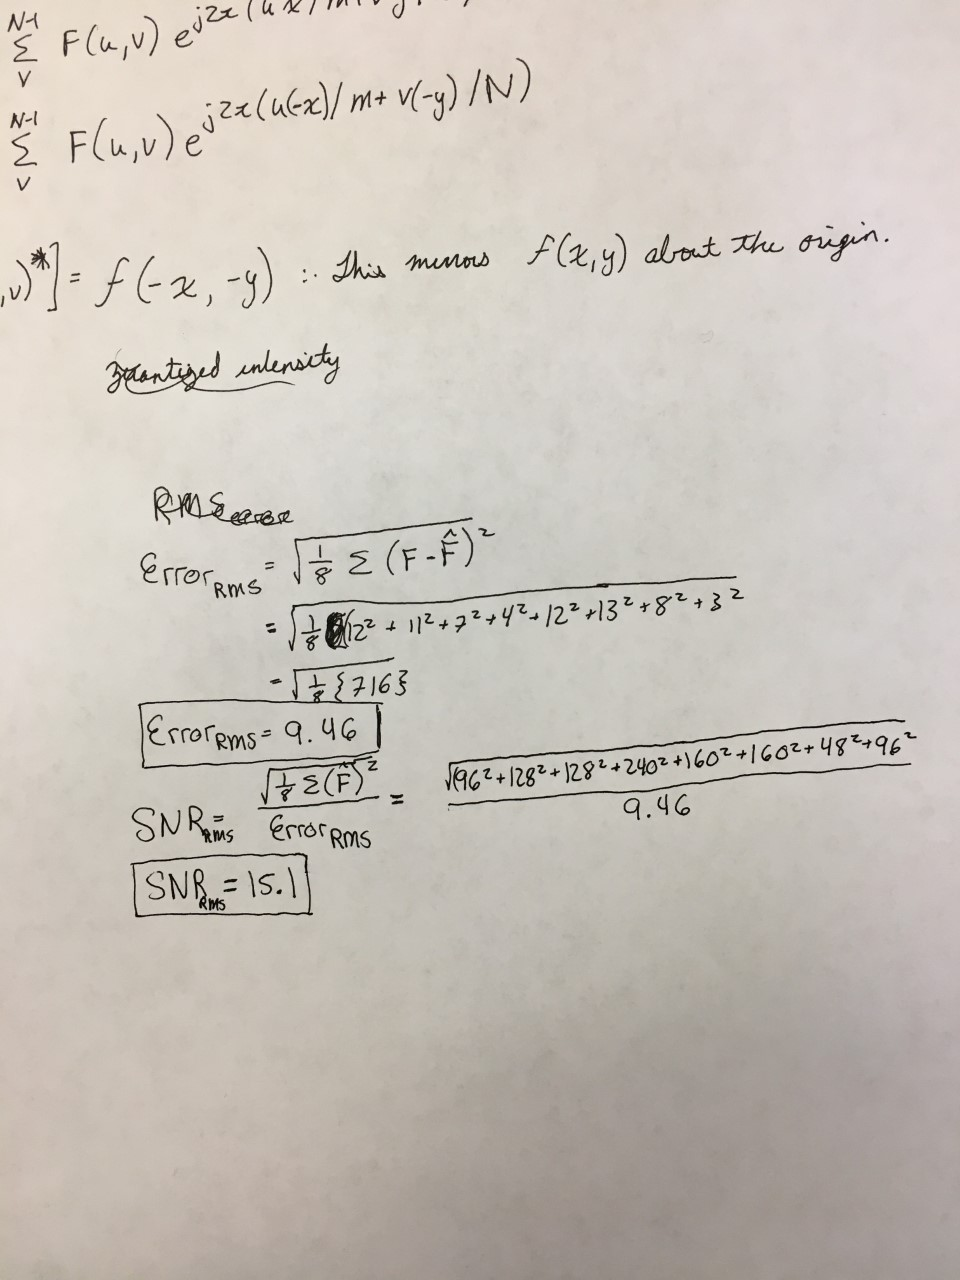 N-1
Σ F(u,v) e^j2π(ux/m+
v
N-1
Σ F(u,v) e^j2π(u(-x)/m+ v(-y)/N)
v
,v)*] = f(-x, -y) ∴ This mirrors f(x,y) about the origin.
quantized intensity
RMS error
Error RMS = √(1/8 Σ (F-F̂)²
= √(1/8 (12² + 11² + 7² + 4² + 12² + 13² + 8² + 3²
= √(1/8 {716}
Error RMS = 9.46
SNR RMS = √(1/8 Σ(F̂)² / Error RMS = √(96²+128²+128²+240²+160²+160²+48²+96² / 9.46
SNR RMS = 15.1